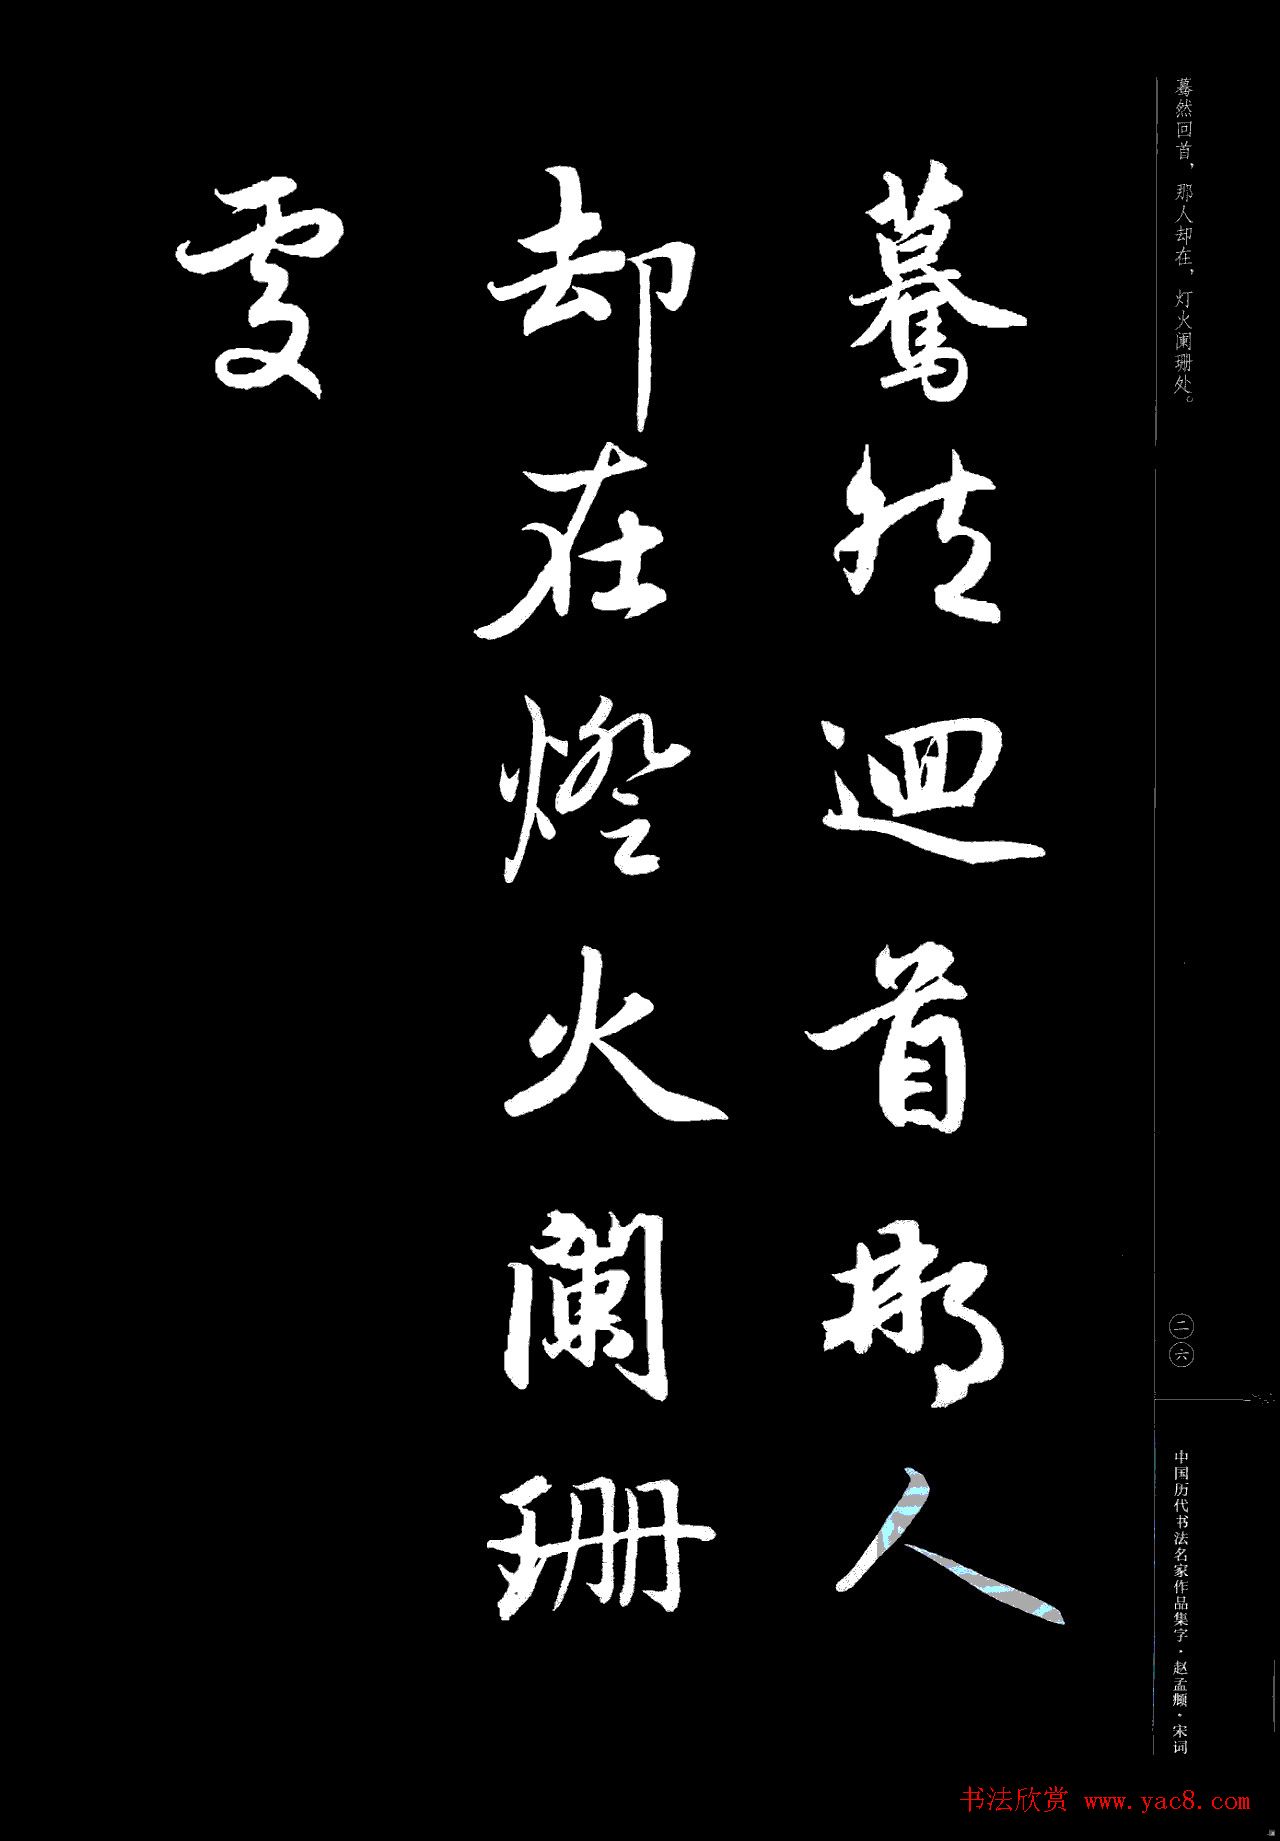 蓦然回首，那人却在，灯火阑珊处。
驀然迴首那人
却在燈火闌珊
處
二六
中国历代书法名家作品集字·赵孟頫·宋词
书法欣赏 www.yac8.com